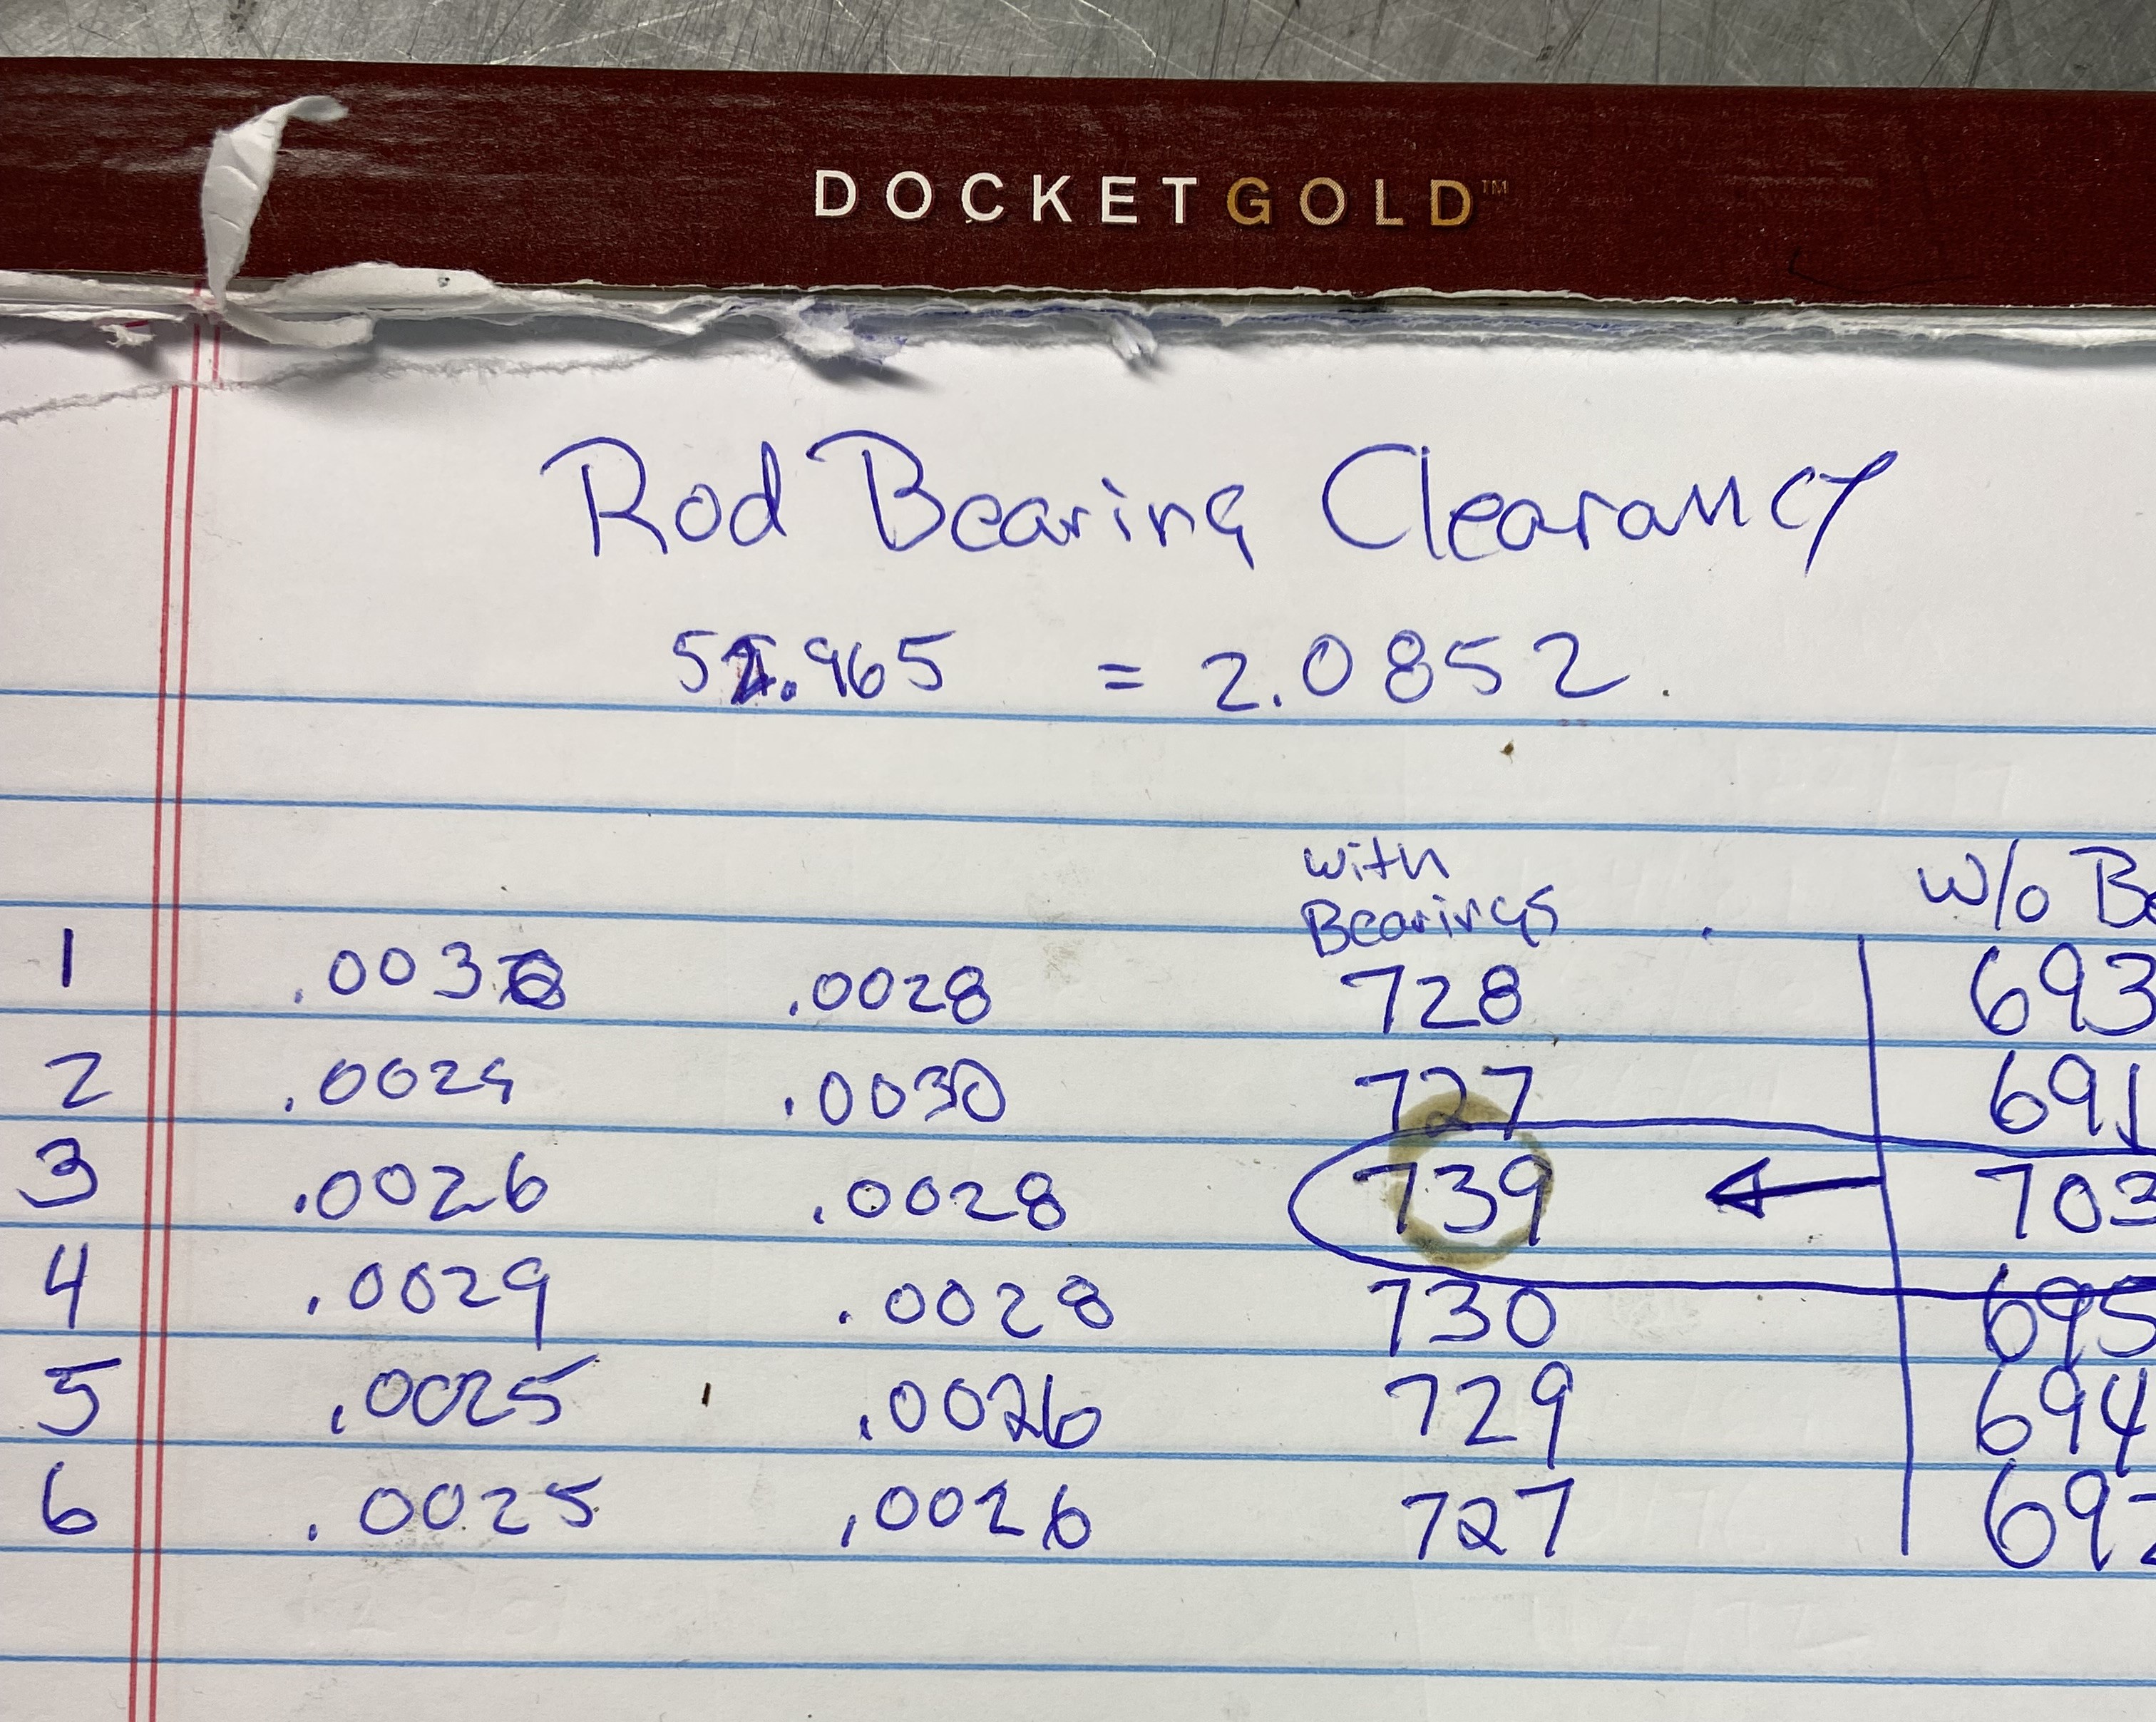 DOCKETGOLD™
Rod Bearing Clearancy
52.965 = 2.0852
with
Bearings
w/o Be
1 .0028 728 693
2 .0029 .0030 727 691
3 .0026 .0028 739 703
4 .0029 .0028 730 695
5 .0025 .0026 729 694
6 .0025 .0026 727 692